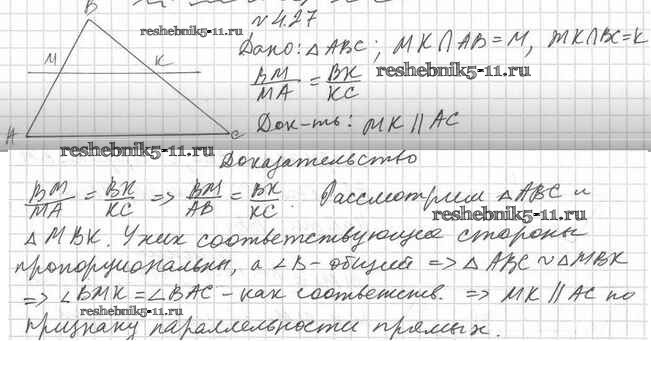 № 4.27
B
reshebnik5-11.ru
Дано: △ABC; MK∩AB=M, MK∩BC=K
M K
BM/MA = BK/KC
reshebnik5-11.ru
Док-ть: MK || AC
A C
reshebnik5-11.ru
Доказательство
BM/MA = BK/KC => BM/AB = BK/KC. Рассмотрим △ABC и
reshebnik5-11.ru
△MBK. У них соответствующие стороны
пропорциональны, а ∠B - общий => △ABC ~ △MBK
=> ∠BMK = ∠BAC - как соответств. => MK || AC по
reshebnik5-11.ru
признаку параллельности прямых.